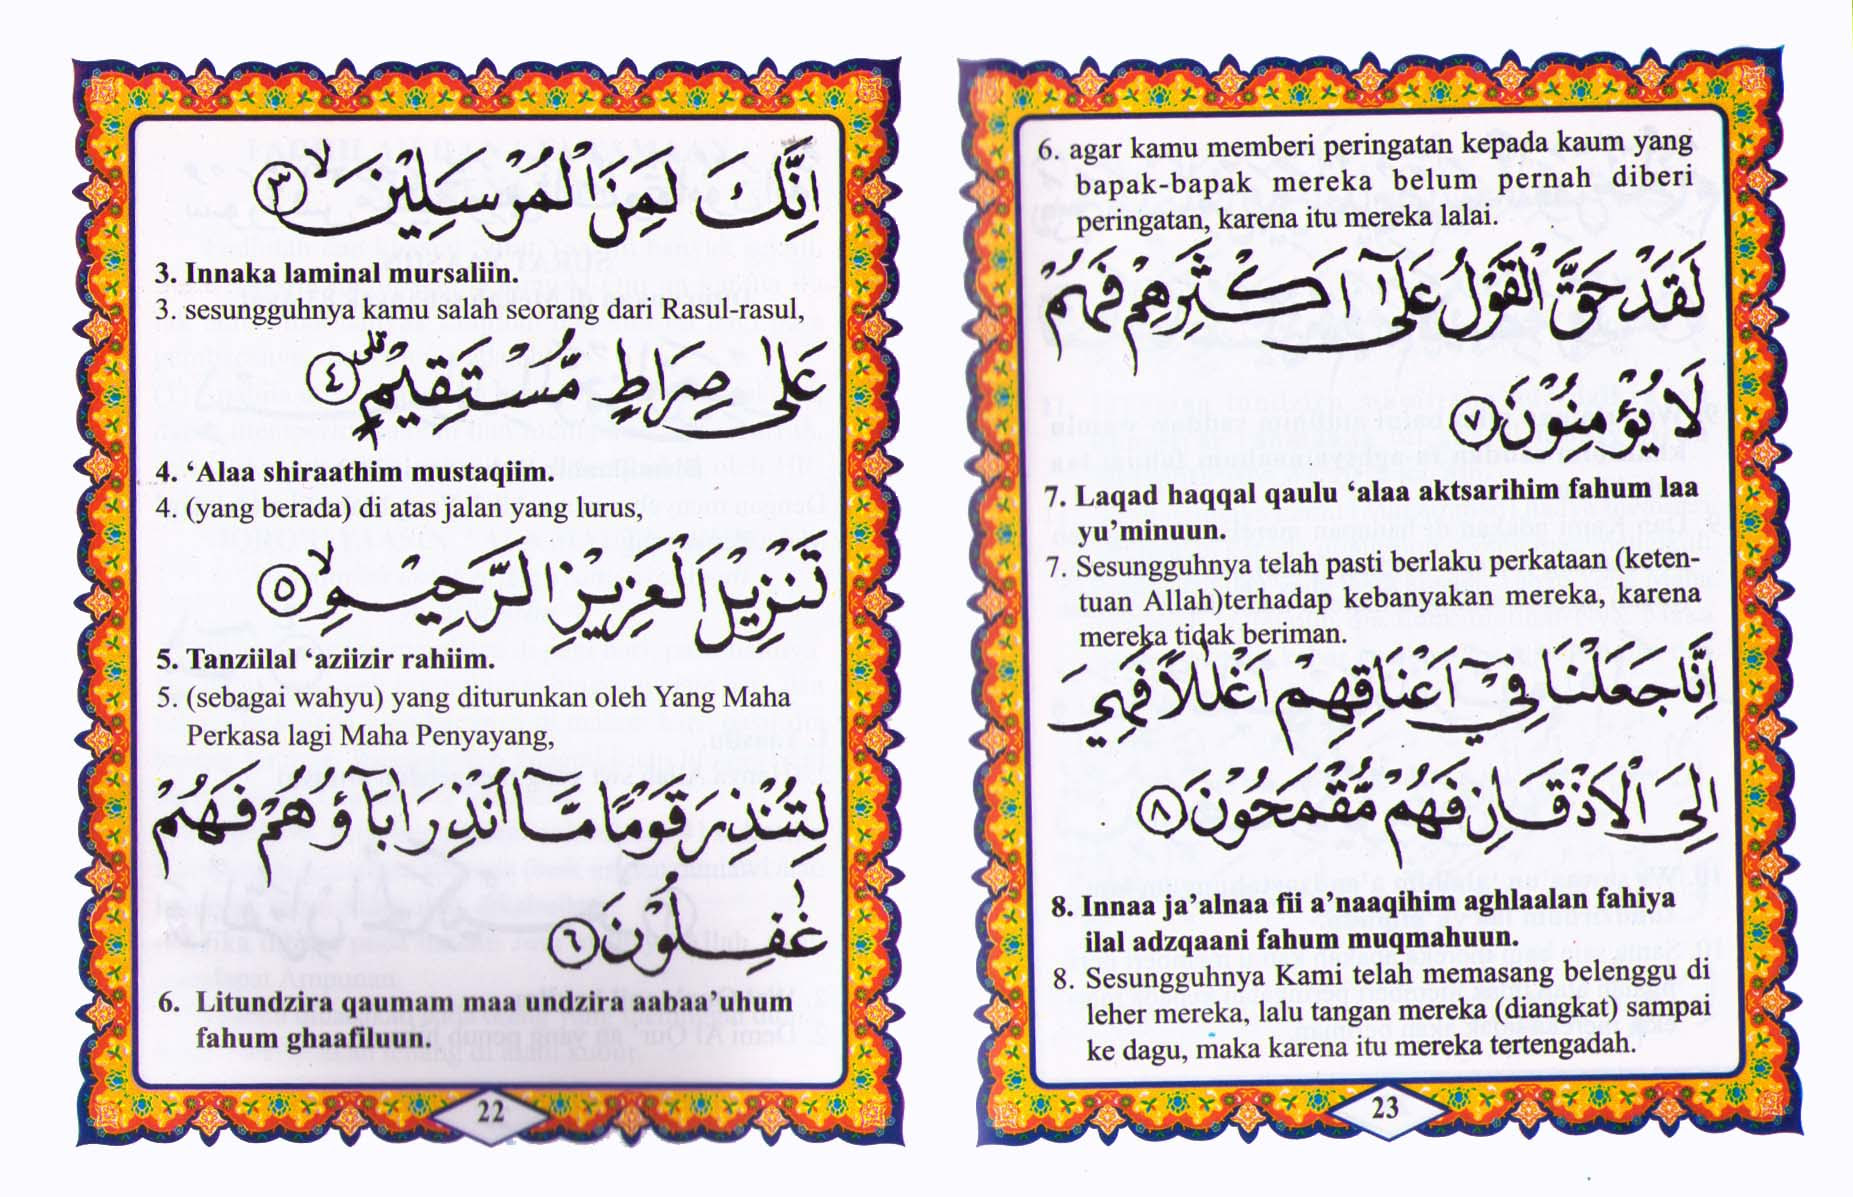 اِنَّكَ لَمِنَ الْمُرْسَلِيْنَۙ ٣
3. Innaka laminal mursaliin.
3. sesungguhnya kamu salah seorang dari Rasul-rasul,
عَلٰى صِرَاطٍ مُّسْتَقِيْمٍۗ ٤
4. ‘Alaa shiraathim mustaqiim.
4. (yang berada) di atas jalan yang lurus,
تَنْزِيْلَ الْعَزِيْزِ الرَّحِيْمِۙ ٥
5. Tanziilal ‘aziizir rahiim.
5. (sebagai wahyu) yang diturunkan oleh Yang Maha
Perkasa lagi Maha Penyayang,
لِتُنْذِرَ قَوْمًا مَّآ اُنْذِرَ اٰبَاۤؤُهُمْ فَهُمْ
غٰفِلُوْنَ ٦
6. Litundzira qaumam maa undzira aabaa’uhum
fahum ghaafiluun.
22
6. agar kamu memberi peringatan kepada kaum yang
bapak-bapak mereka belum pernah diberi
peringatan, karena itu mereka lalai.
لَقَدْ حَقَّ الْقَوْلُ عَلٰٓى اَكْثَرِهِمْ فَهُمْ
لَا يُؤْمِنُوْنَ ٧
7. Laqad haqqal qaulu ‘alaa aktsarihim fahum laa
yu’minuun.
7. Sesungguhnya telah pasti berlaku perkataan (keten-
tuan Allah)terhadap kebanyakan mereka, karena
mereka tidak beriman.
اِنَّا جَعَلْنَا فِيْٓ اَعْنَاقِهِمْ اَغْلٰلًا فَهِيَ
اِلَى الْاَذْقَانِ فَهُمْ مُّقْمَحُوْنَ ٨
8. Innaa ja’alnaa fii a’naaqihim aghlaalan fahiya
ilal adzqaani fahum muqmahuun.
8. Sesungguhnya Kami telah memasang belenggu di
leher mereka, lalu tangan mereka (diangkat) sampai
ke dagu, maka karena itu mereka tertengadah.
23